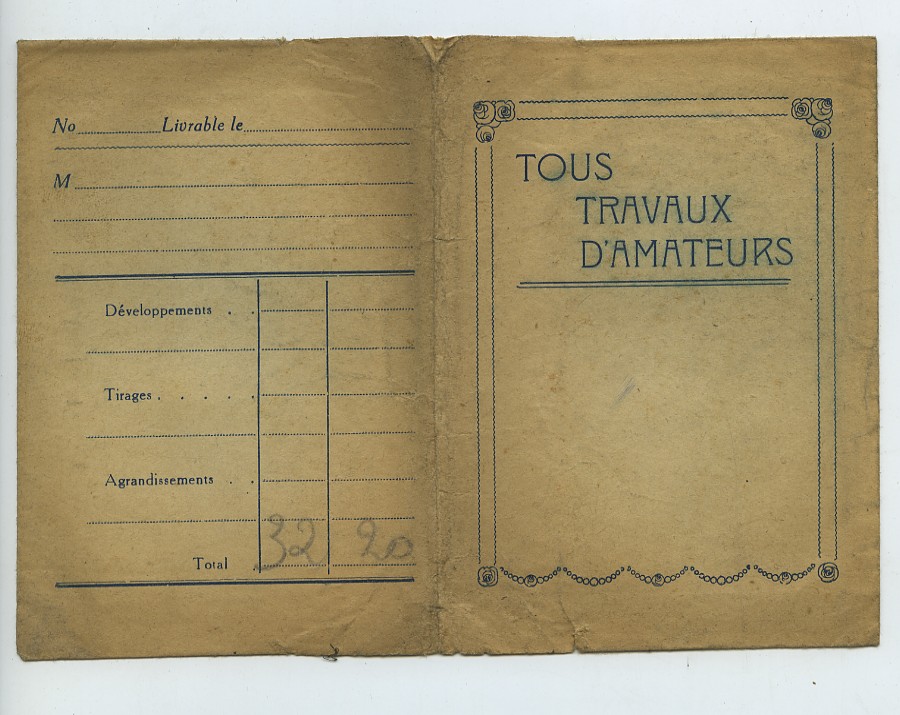 No Livrable le
M
Développements . .
Tirages . . . . .
Agrandissements . .
Total 32 20
TOUS
TRAVAUX
D'AMATEURS